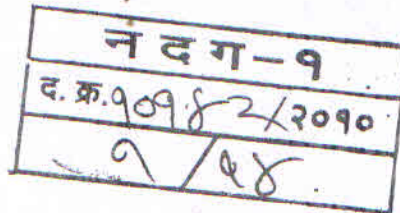 नं द ग - १
द. क्र. १०१४२/२०१०
१/५४